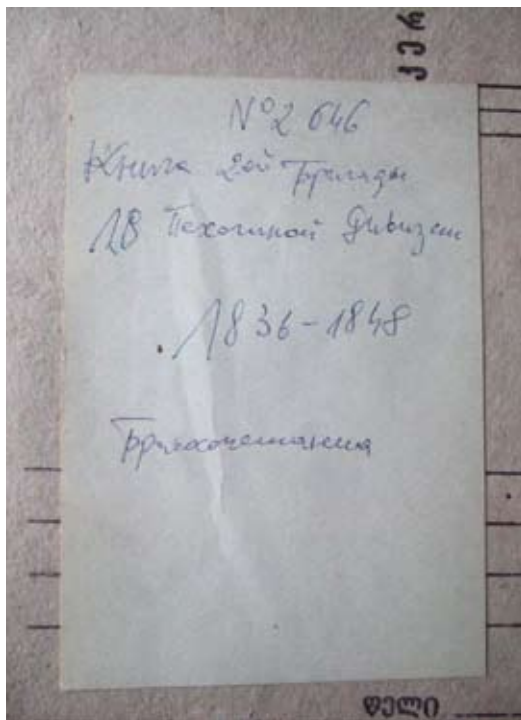 კერ
№2 646
Книга 2ой Бригады
18 Пехотной Дивизии
1836-1848
Бракосочетания
წელი